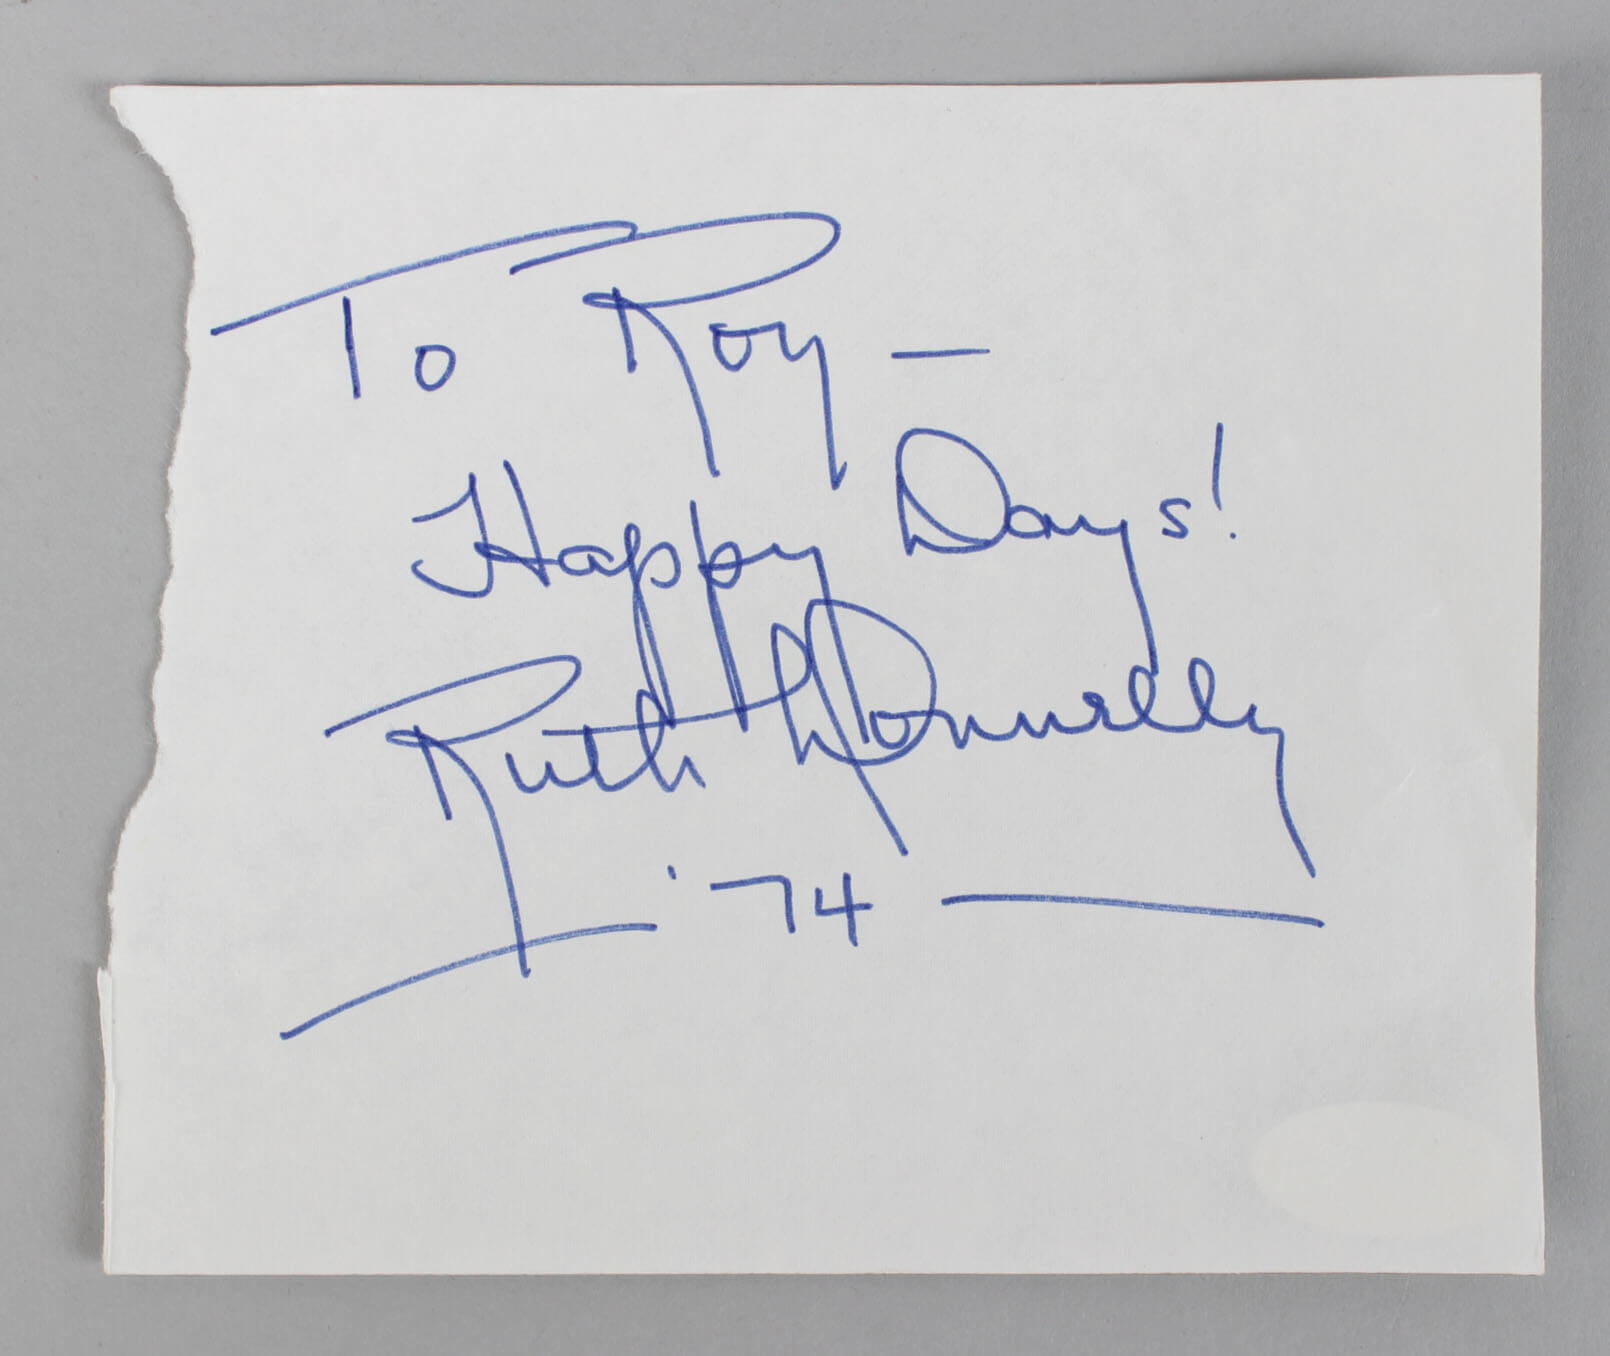 To Roy —
Happy Days!
Ruth Donnelly
'74 —